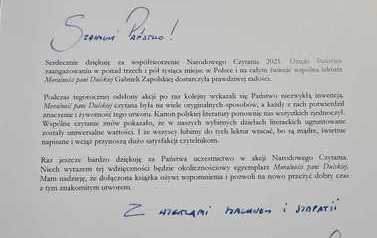 Szanowni Państwo!
Serdecznie dziękuję za współtworzenie Narodowego Czytania 2021. Dzięki Państwa
zaangażowaniu w ponad trzech i pół tysiąca miejsc w Polsce i na całym świecie wspólna lektura
Moralności pani Dulskiej Gabrieli Zapolskiej dostarczyła prawdziwej radości.
Podczas tegorocznej odsłony akcji po raz kolejny wykazali się Państwo niezwykłą inwencją.
Moralność pani Dulskiej czytana była na wiele oryginalnych sposobów, a każdy z nich potwierdził
znaczenie i żywotność tego utworu. Kanon polskiej literatury ponownie nas wszystkich zjednoczył.
Wspólne czytanie znów pokazało, że w naszych wybitnych dziełach literackich ugruntowane
zostały uniwersalne wartości. I że wszyscy lubimy do tych lektur wracać, bo są mądre, świetnie
napisane i wciąż przynoszą dużo satysfakcji czytelnikom.
Raz jeszcze bardzo dziękuję za Państwa uczestnictwo w akcji Narodowego Czytania.
Niech wyrazem tej wdzięczności będzie okolicznościowy egzemplarz Moralności pani Dulskiej.
Mam nadzieję, że dołączona książka ożywi wspomnienia i pozwoli na nowo przeżyć dobry czas
z tym znakomitym utworem.
Z wyrazami szacunku i sympatii